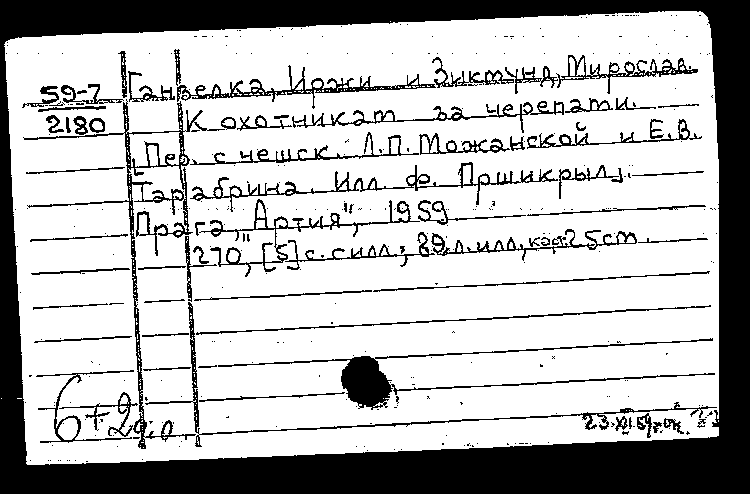 59-7
2180
Ганзелка, Иржи и Зиктунд, Мирослав.
К охотникат за черепати.
[Пер. с чешск. Л.П. Можанской и Е.В.
Тарабрина. Илл. Ф. Пршикрыл].
Прага, "Артия", 1959
270, [5] с. с илл.; 89 л. илл, карт 25 ст.
6+2 д.о.
23.XII.59г.